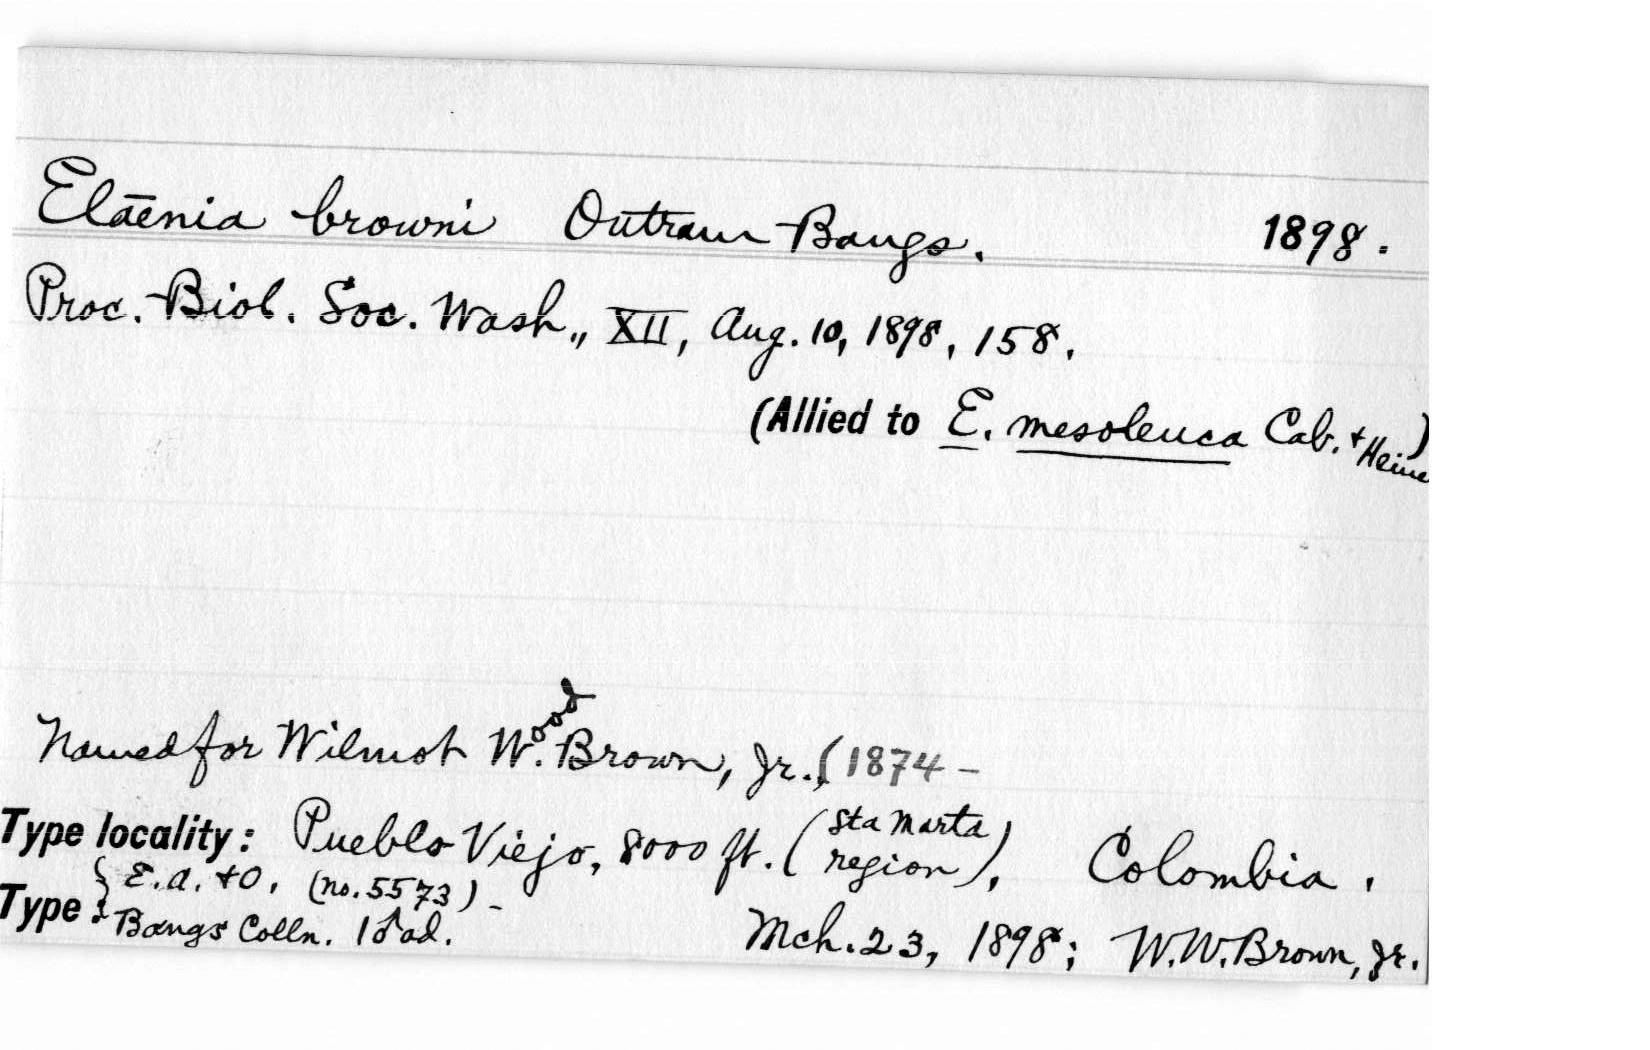 Elaenia browni Outram Bangs. 1898.
Proc. Biol. Soc. Wash., XII, Aug. 10, 1898, 158.
(Allied to E. mesoleuca Cab. + Heine)
Named for Wilmot W.ood Brown, Jr., (1874 –
Type locality: Pueblo Viejo, 8000 ft. (Sta Marta region), Colombia.
Type: { E.A. + O. (no. 5573) –
Bangs Colln. 1 ♂ ad. Mch. 23, 1898; W.W. Brown, Jr.